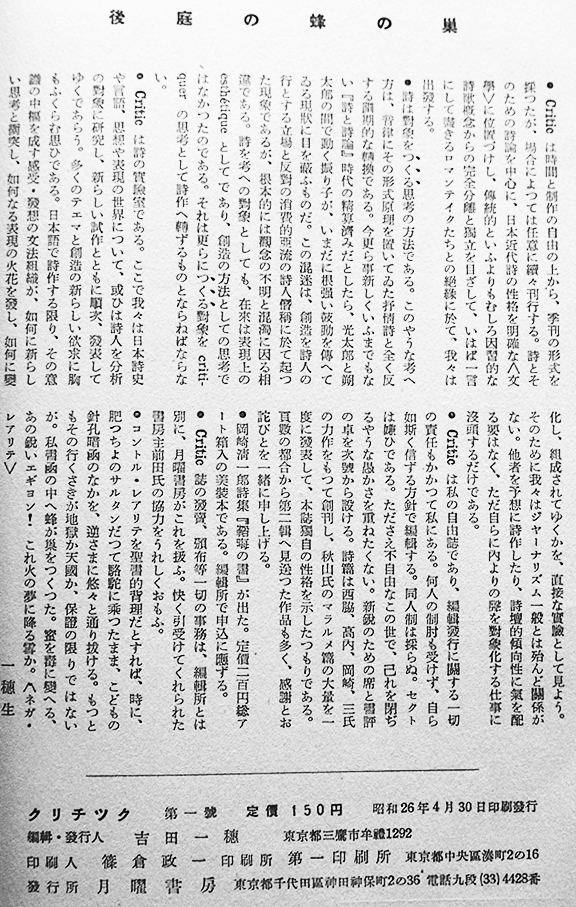 後庭の蜂の巣
● Critic は時間と制作の自由の上から、季刊の形式を
採つたが、場合によつては任意に續々刊行する。詩とそ
のための詩論を中心に、日本近代詩の性格を明確な〈文
學〉に位置づけし、傳統的といふよりもむしろ因習的な
詩歌概念からの完全分離と獨立を目ざして、いはば一言
にして盡きるロマンテイクたちとの絶縁に於て、我々は
出發する。
● 詩は對象をつくる思考の方法である。このやうな考へ
方は、音律にその形式原理を置いてゐた抒情詩と全く反
する劃期的な轉換である。今更ら事新しくいふまでもな
い『詩と詩論』時代の精算濟みだとしたら、光太郎と朔
太郎の間で動く振り子が、いまだに根强い鼓動を傳へて
ゐる現狀に目を蔽ふものだ。この混迷は、創造を詩人の
行とする立場と反對の消費的亞流の詩人僭稱に於て起つ
た現象であるが、根本的には觀念の不明と混濁に因る相
違である。詩を考への對象としても、在來は表現上の
esthétique としてであり、創造の方法としての思考で
はなかつたのである。それは更らにつくる對象を criti-
quer の思考として詩作へ轉ずるものとならねばならな
い。
● Critic は詩の實驗室である。ここで我々は日本詩史
や言語、思想や表現の世界について、或ひは詩人を分析
の對象に研究し、新らしい試作とともに順次、發表して
ゆくであらう。多くのテエマと創造の新らしい欲求に胸
もふくらむ思ひである。日本語で詩作する限り、その意
識の中樞を成す感受・發想の文法組織が、如何に新らし
い思考と衝突し、如何なる表現の火花を發し、如何に變
化し、組成されてゆくかを、直接な實驗として見よう。
そのために我々はジャーナリズム一般とは殆んど關係が
ない。他者を予想に詩作したり、詩壇的傾向性に氣を配
る要はなく、ただ自らに内よりの聲を對象化する仕事に
沒頭するだけである。
● Critic は私の自由誌であり、編輯發行に關する一切
の責任もかかつて私にある。何人の制肘も受けず、自ら
如斯く信ずる方針で編輯する。同人制は採らぬ。セクト
は嫌ひである。たださへ不自由なこの世で、己れを閉ぢ
るやうな愚かさを重ねたくない。新鋭のための席と書評
の卓を次號から設ける。詩篇は西脇、高內、岡崎、三氏
の力作をもつて創刊し、秋山氏のマラルメ篇の大量を一
度に發表して、本誌獨自の性格を示したつもりである。
頁數の都合から第二輯へ見送つた作品も多く、感謝とお
詫びとを一緒に申し上げる。
● 岡崎清一郎詩集『韜晦の書』が出た。定價二百円總ア
ート箱入の美裝本である。編輯所で申込に應ずる。
● Critic 誌の發賣、頒布等一切の事務は、編輯所とは
別に、月曜書房がこれを扱ふ。快く引受けてくれられた
書房主前田氏の協力をうれしくおもふ。
● コントル・レアリテを聖書的背理だとすれば、時に、
肥つちよのサルタンだつて駱駝に乘つたまま、こどもの
針孔暗函のなかを、逆さまに悠々と通り拔ける。もつと
もその行くさきが地獄か天國か、保證の限りではない
が。私書函の中へ蜂が巣をつくつた。蜜を毒に變へる、
あの鋭いエギヨン！　これ火の夢に降る雪か。〈ネガ・
レアリテ〉
一穗生
クリチック　第一號　定價 150円　昭和26年4月30日印刷發行
編輯・發行人　吉田一穗　東京都三鷹市牟禮1292
印刷人　篠倉政一　印刷所　第一印刷所　東京都中央區湊町2の16
發行所　月曜書房　東京都千代田區神田神保町2の36　電話九段(33)4428番